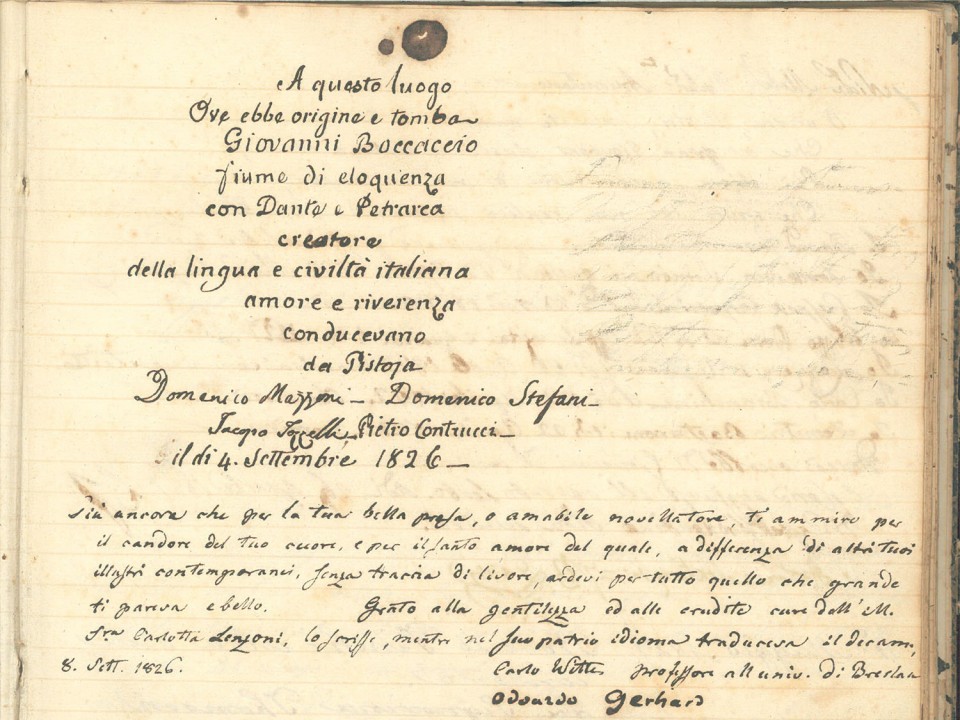 A questo luogo
Ove ebbe origine e tomba
Giovanni Boccaccio
fiume di eloquenza
con Dante e Petrarca
creatore
della lingua e civiltà italiana
amore e riverenza
conducevano
da Pistoja
Domenico Mazzoni – Domenico Stefani –
Jacopo Pietro Contrucci –
il dì 4. Settembre 1826 –
Più ancora che per la tua bella prosa, o amabile novellatore, ti ammiro per
il candore del tuo cuore, e per il santo amore del quale, a differenza di altri tuoi
illustri contemporanei, senza traccia di livore, ardevi per tutto quello che grande
ti pareva e bello. Grato alla gentilezza ed alle erudite cure dell' ill.
Sra Carlotta Lenzoni, lo scrisse, mentre nel suo patrio idioma traduceva il decam.
8. Sett. 1826. Carlo Witte professore all univ. di Breslau
Odoardo Gerhard